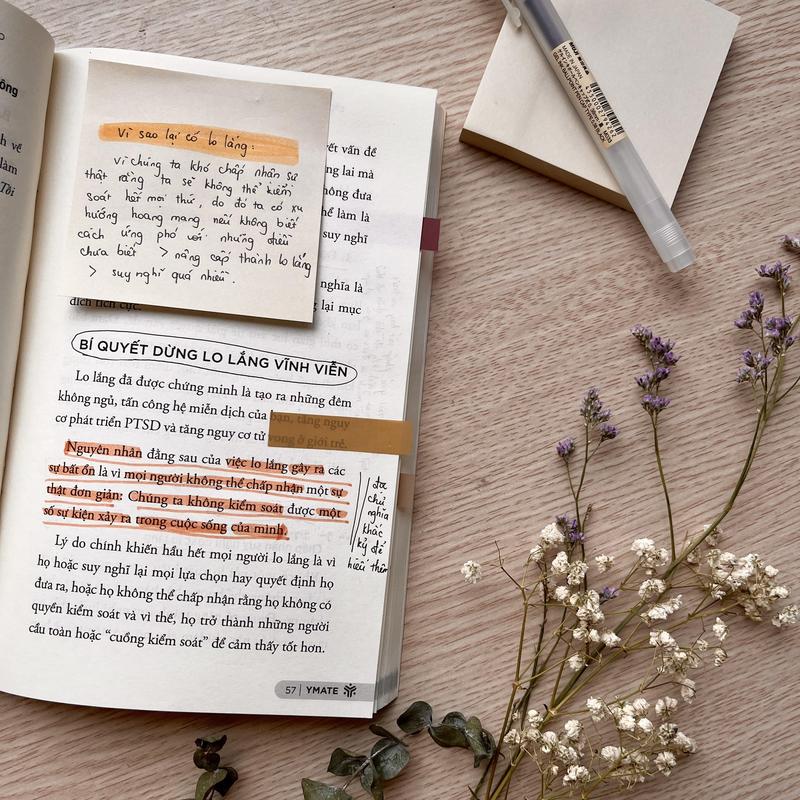 ông
h về
làm
Tôi
Vì sao lại có lo lắng:
vì chúng ta khó chấp nhận sự
thật rằng ta sẽ không thể kiểm
soát hết mọi thứ, do đó ta có xu
hướng hoang mang nếu không biết
cách ứng phó với những điều
chưa biết > nâng cấp thành lo lắng
> suy nghĩ quá nhiều.
yết vấn đề
g lai mà
hông đưa
hể làm là
suy nghĩ
nghĩa là
g lại mục
đích tích cực.
BÍ QUYẾT DỪNG LO LẮNG VĨNH VIỄN
Lo lắng đã được chứng minh là tạo ra những đêm
không ngủ, tấn công hệ miễn dịch của bạn, tăng nguy
cơ phát triển PTSD và tăng nguy cơ tử vong ở giới trẻ.
Nguyên nhân đằng sau của việc lo lắng gây ra các
sự bất ổn là vì mọi người không thể chấp nhận một sự
thật đơn giản: Chúng ta không kiểm soát được một
số sự kiện xảy ra trong cuộc sống của mình.
Lý do chính khiến hầu hết mọi người lo lắng là vì
họ hoặc suy nghĩ lại mọi lựa chọn hay quyết định họ
đưa ra, hoặc họ không thể chấp nhận rằng họ không có
quyền kiểm soát và vì thế, họ trở thành những người
cầu toàn hoặc "cuồng kiểm soát" để cảm thấy tốt hơn.
chủ
nghĩa
khắc
kỷ để
hiểu thêm
57 | YMATE
MADE IN JAPAN